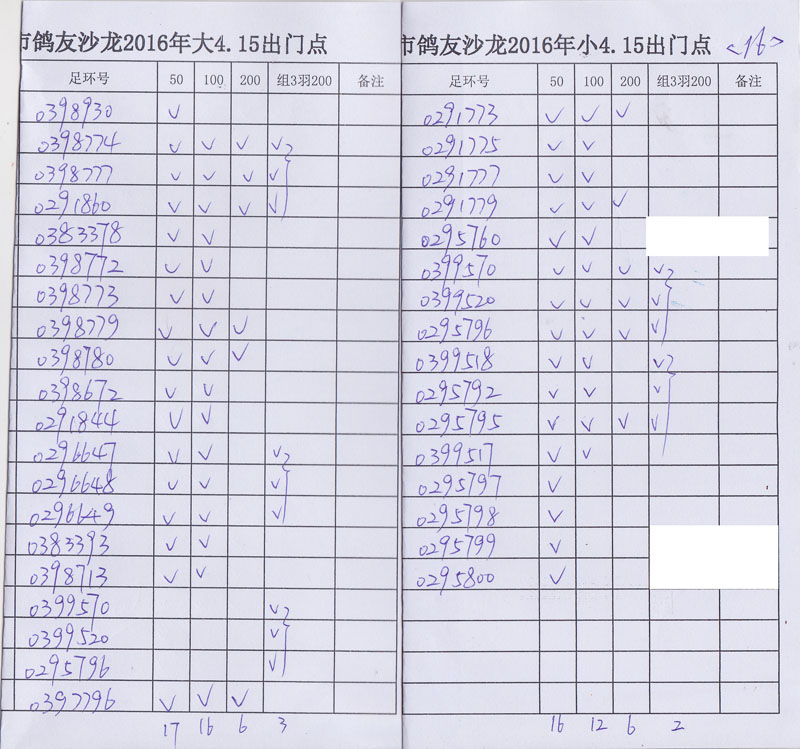 市鸽友沙龙2016年大4.15出门点
足环号 50 100 200 组3羽200 备注
0398930 √
0398774 √ √ √ √
0398777 √ √ √ √
0291860 √ √ √ √
0383378 √ √
0398772 √ √
0398773 √ √
0398779 √ √ √
0398780 √ √ √
0398672 √ √
0291844 √ √
0296647 √ √ √
0296648 √ √ √
0296649 √ √ √
0383393 √ √
0398713 √ √
0399570 √
0399520 √
0295796 √
0397796 √ √ √
17 16 6 3
市鸽友沙龙2016年小4.15出门点 <16>
足环号 50 100 200 组3羽200 备注
0291773 √ √ √
0291775 √ √
0291777 √ √
0291779 √ √ √
0295760 √ √
0399570 √ √ √ √
0399520 √ √ √ √
0295796 √ √ √ √
0399518 √ √ √
0295792 √ √ √
0295795 √ √ √ √
0399517 √ √
0295797 √
0295798 √
0295799 √
0295800 √
16 12 6 2